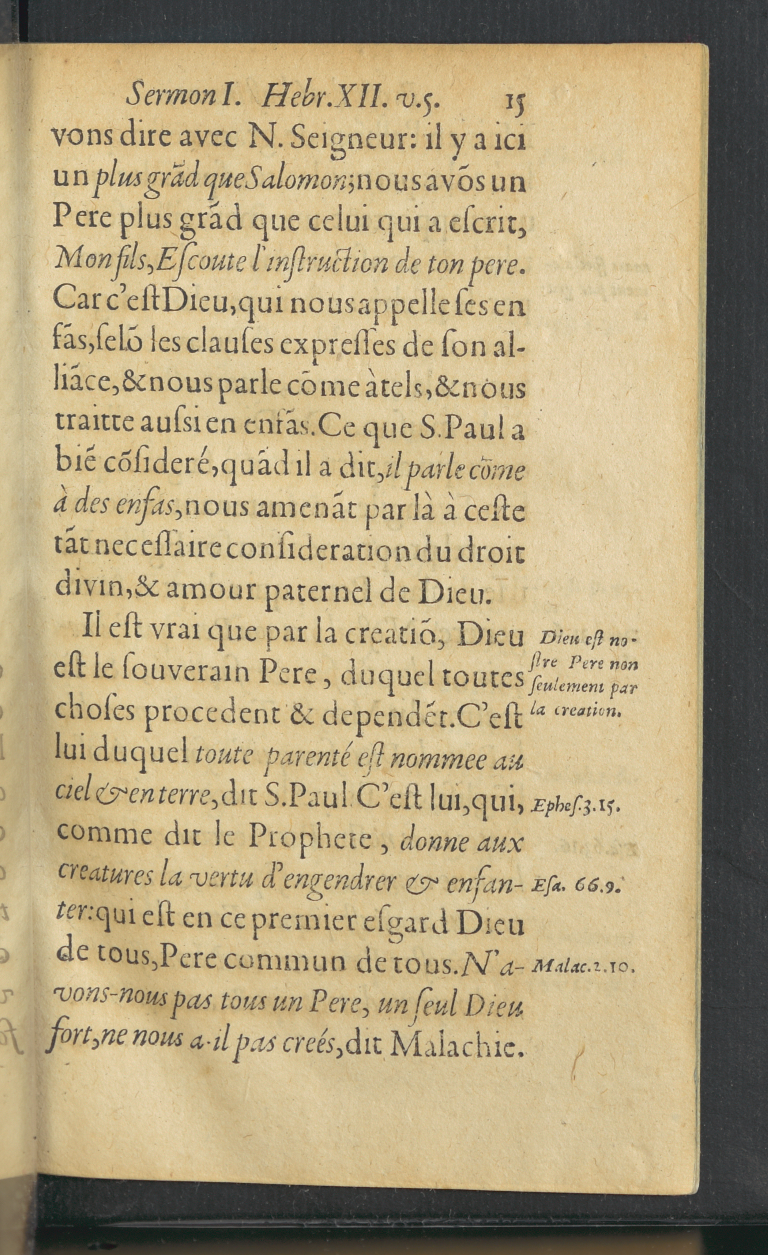 Sermon I. Hebr. XII. v.5. 15
vons dire avec N. Seigneur: il y a ici
un plus grãd que Salomon; nous avõs un
Pere plus grãd que celui qui a eſcrit,
Mon fils, Eſcoute l'inſtruction de ton pere.
Car c'eſt Dieu, qui nous appelle ſes en
fãs, ſelõ les clauſes expreſſes de ſon al-
liãce, & nous parle cõme à tels, & nous
traitte auſsi en enfãs. Ce que S. Paul a
biẽ cõſideré, quãd il a dit, il parle cõme
à des enfãs, nous amenãt par là à ceſte
tãt neceſſaire conſideration du droit
divin, & amour paternel de Dieu.
Il eſt vrai que par la creatiõ, Dieu
eſt le ſouverain Pere, duquel toutes
choſes procedent & dependẽt. C'eſt
lui duquel toute parenté eſt nommee au
ciel & en terre, dit S. Paul. C'eſt lui, qui,
comme dit le Prophete, donne aux
creatures la vertu d'engendrer & enfan-
ter: qui eſt en ce premier eſgard Dieu
de tous, Pere commun de tous. N'a-
vons-nous pas tous un Pere, un ſeul Dieu
fort, ne nous a-il pas creés, dit Malachie.
Dieu eſt no-
ſtre Pere non
ſeulement par
la creation.
Epheſ. 3. 15.
Eſa. 66. 9.
Malac. 2. 10.